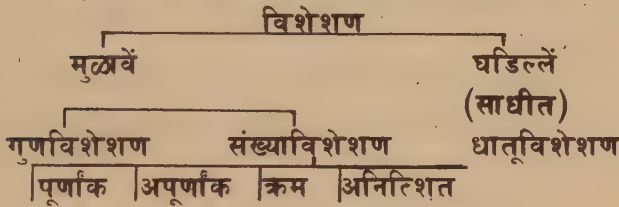 विशेशण
मुळावें घडिल्लें
(साधीत)
गुणविशेशण संख्याविशेशण धातूविशेशण
पूर्णांक अपूर्णांक क्रम अनिश्चित